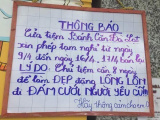 THÔNG BÁO
Cửa tiệm Bánh Căn Đà Lạt
xin phép tạm nghỉ từ ngày
9/4 đến ngày 16/4, 17/4 bán lại
LÝ DO: Chủ tiệm cần 8 ngày
để làm ĐẸP dáng LỘNG LỘN
đi ĐÁM CƯỚI NGƯỜI YÊU CŨ